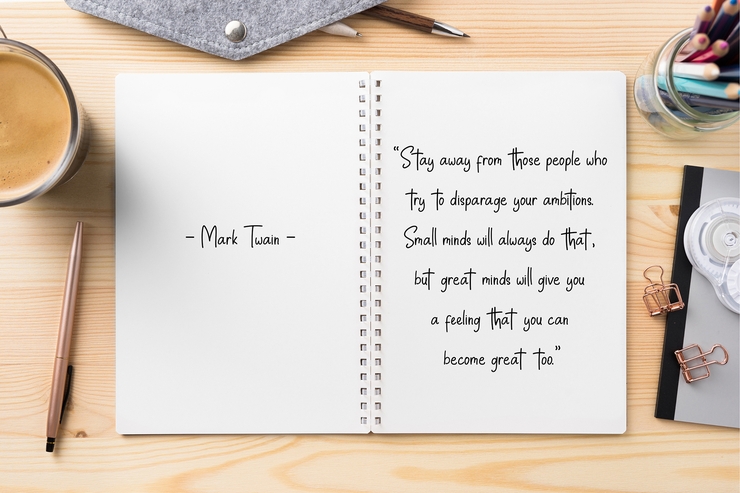 – Mark Twain –
“Stay away from those people who
try to disparage your ambitions.
Small minds will always do that,
but great minds will give you
a feeling that you can
become great too.”